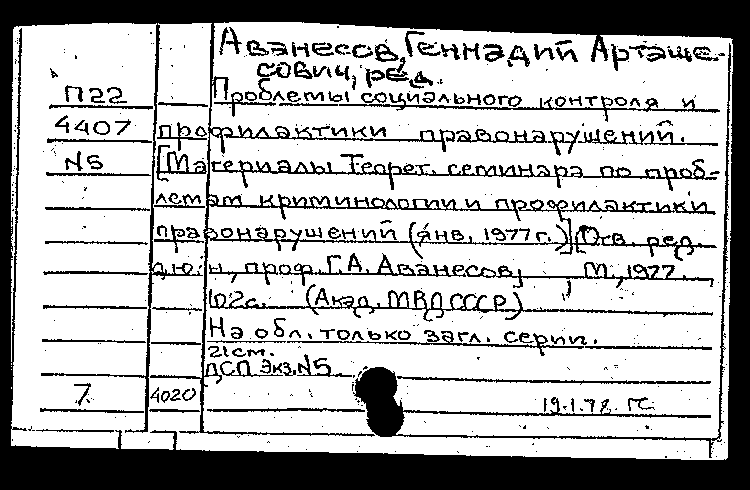 Аванесов, Геннадий Арташе-
сович, ред.
П22 Проблемы социального контроля и
4407 профилактики правонарушений.
N5 [Материалы Теорет. семинара по проб-
лемам криминологии и профилактики
правонарушений (янв. 1977 г.)] [Отв. ред.
д.ю.н., проф. Г.А. Аванесов] М., 1977.
102 с. (Акад. МВД СССР)
На обл. только загл. серии.
21 см.
ДСП Экз. N5
7 4020 19.1.78. ГС